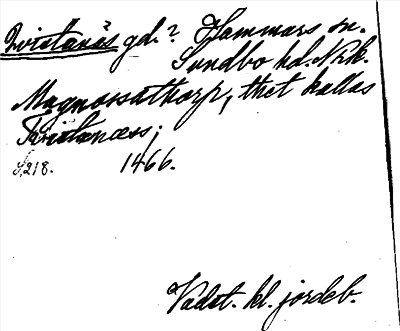 Qvistanäs gd.? Hammars sn.
Sundbo hd. Nrk.
Magnossathorp, thet kallas
Tvistanæss;
S. 218. 1466.
Vadst. kl. jordeb.